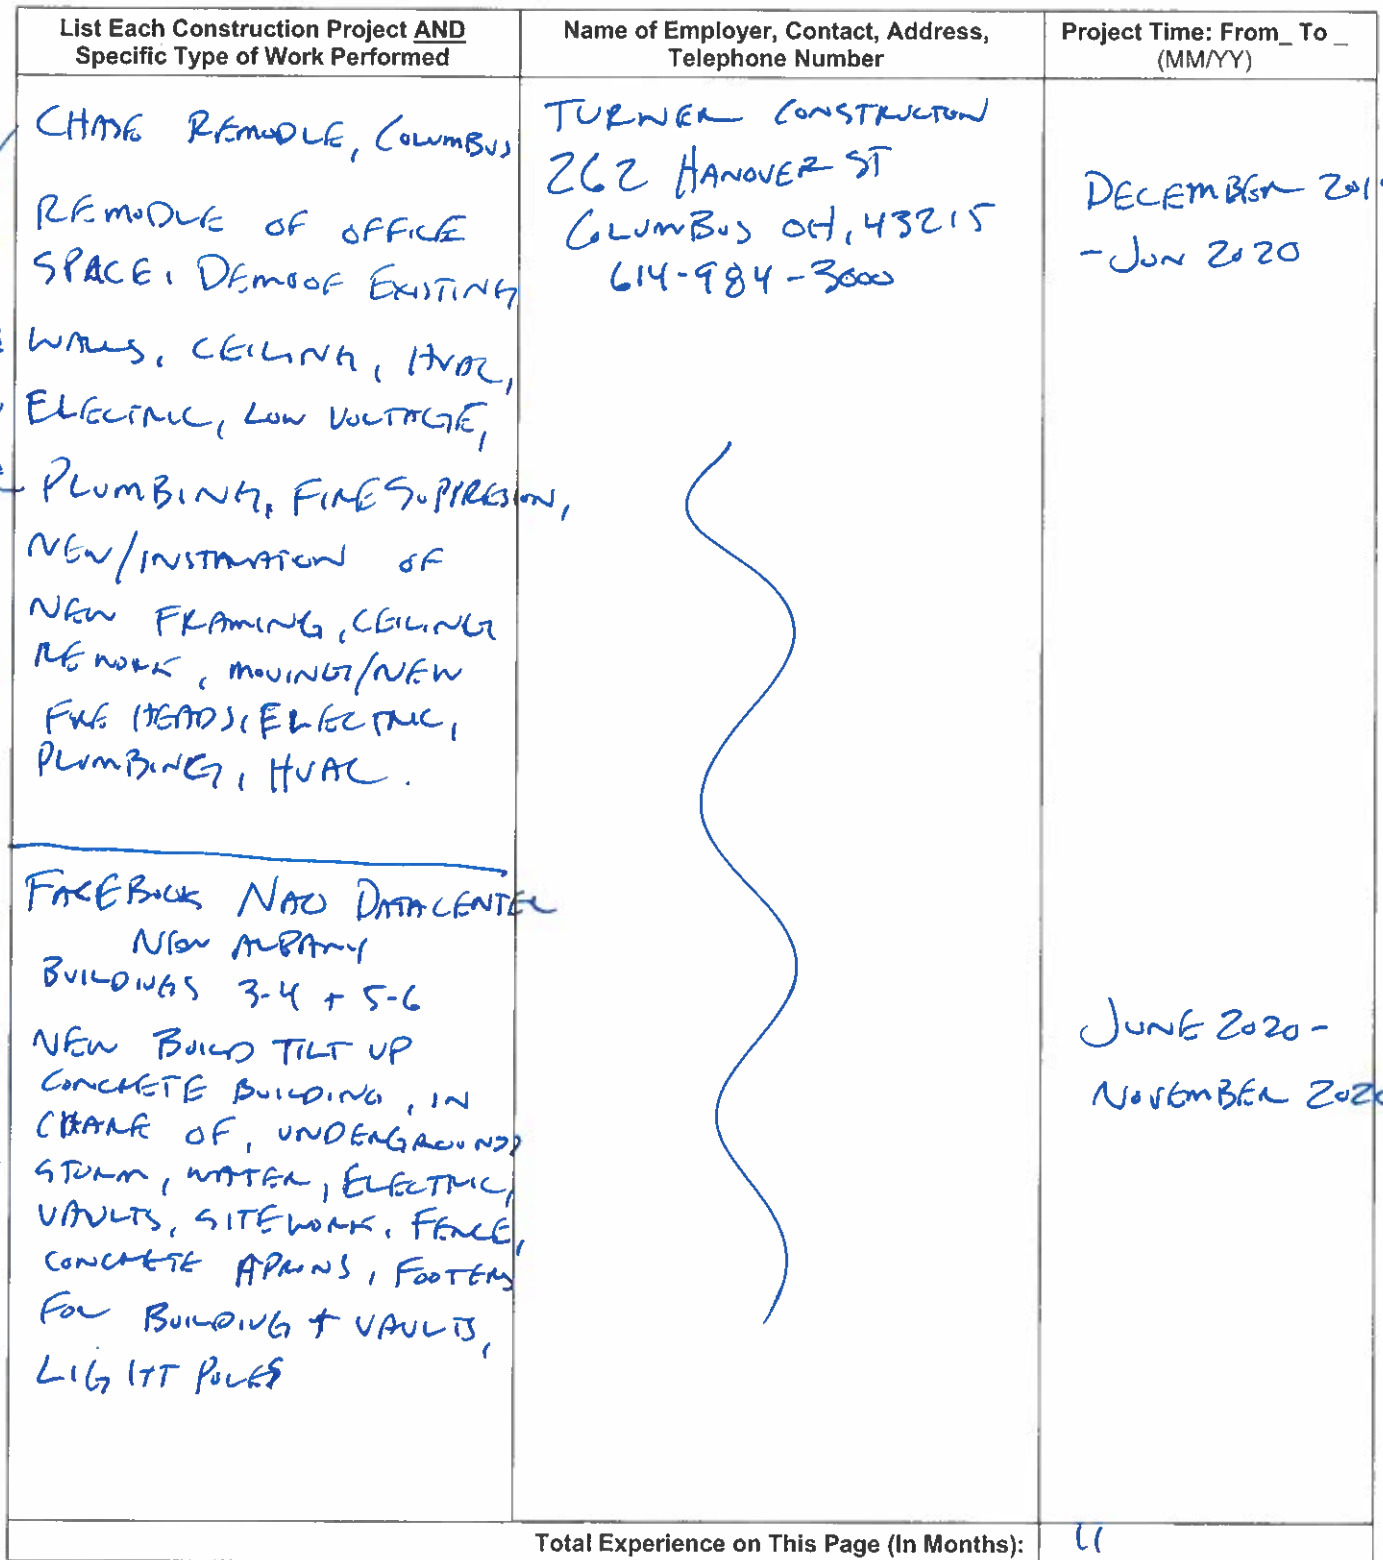 List Each Construction Project AND
Specific Type of Work Performed
Name of Employer, Contact, Address,
Telephone Number
Project Time: From_ To _
(MM/YY)
CHASE REMODLE, COLUMBUS
REMODLE OF OFFICE
SPACE, DEMO OF EXISTING
WALLS, CEILING, HVAC,
ELECTRIC, LOW VOLTAGE,
PLUMBING, FIRE SUPPRESION,
NEW/INSTALLATION OF
NEW FRAMING, CEILING
REWORK, MOVING/NEW
FIRE HEADS, ELECTRIC,
PLUMBING, HVAC.
TURNER CONSTRUCTON
262 HANOVER ST
COLUMBUS OH, 43215
614-984-3000
DECEMBER 201
-JUN 2020
FACEBOOK NAO DATACENTER
NEW ALBANY
BUILDINGS 3-4 + 5-6
NEW BUILD TILT UP
CONCRETE BUILDING, IN
CHARE OF, UNDERGROUND
STORM, WATER, ELECTRIC,
VAULTS, SITEWORK, FENCE,
CONCRETE APRONS, FOOTERS
FOR BUILDING + VAULTS,
LIGHT POLES
JUNE 2020 -
NOVEMBER 2020
Total Experience on This Page (In Months):
11